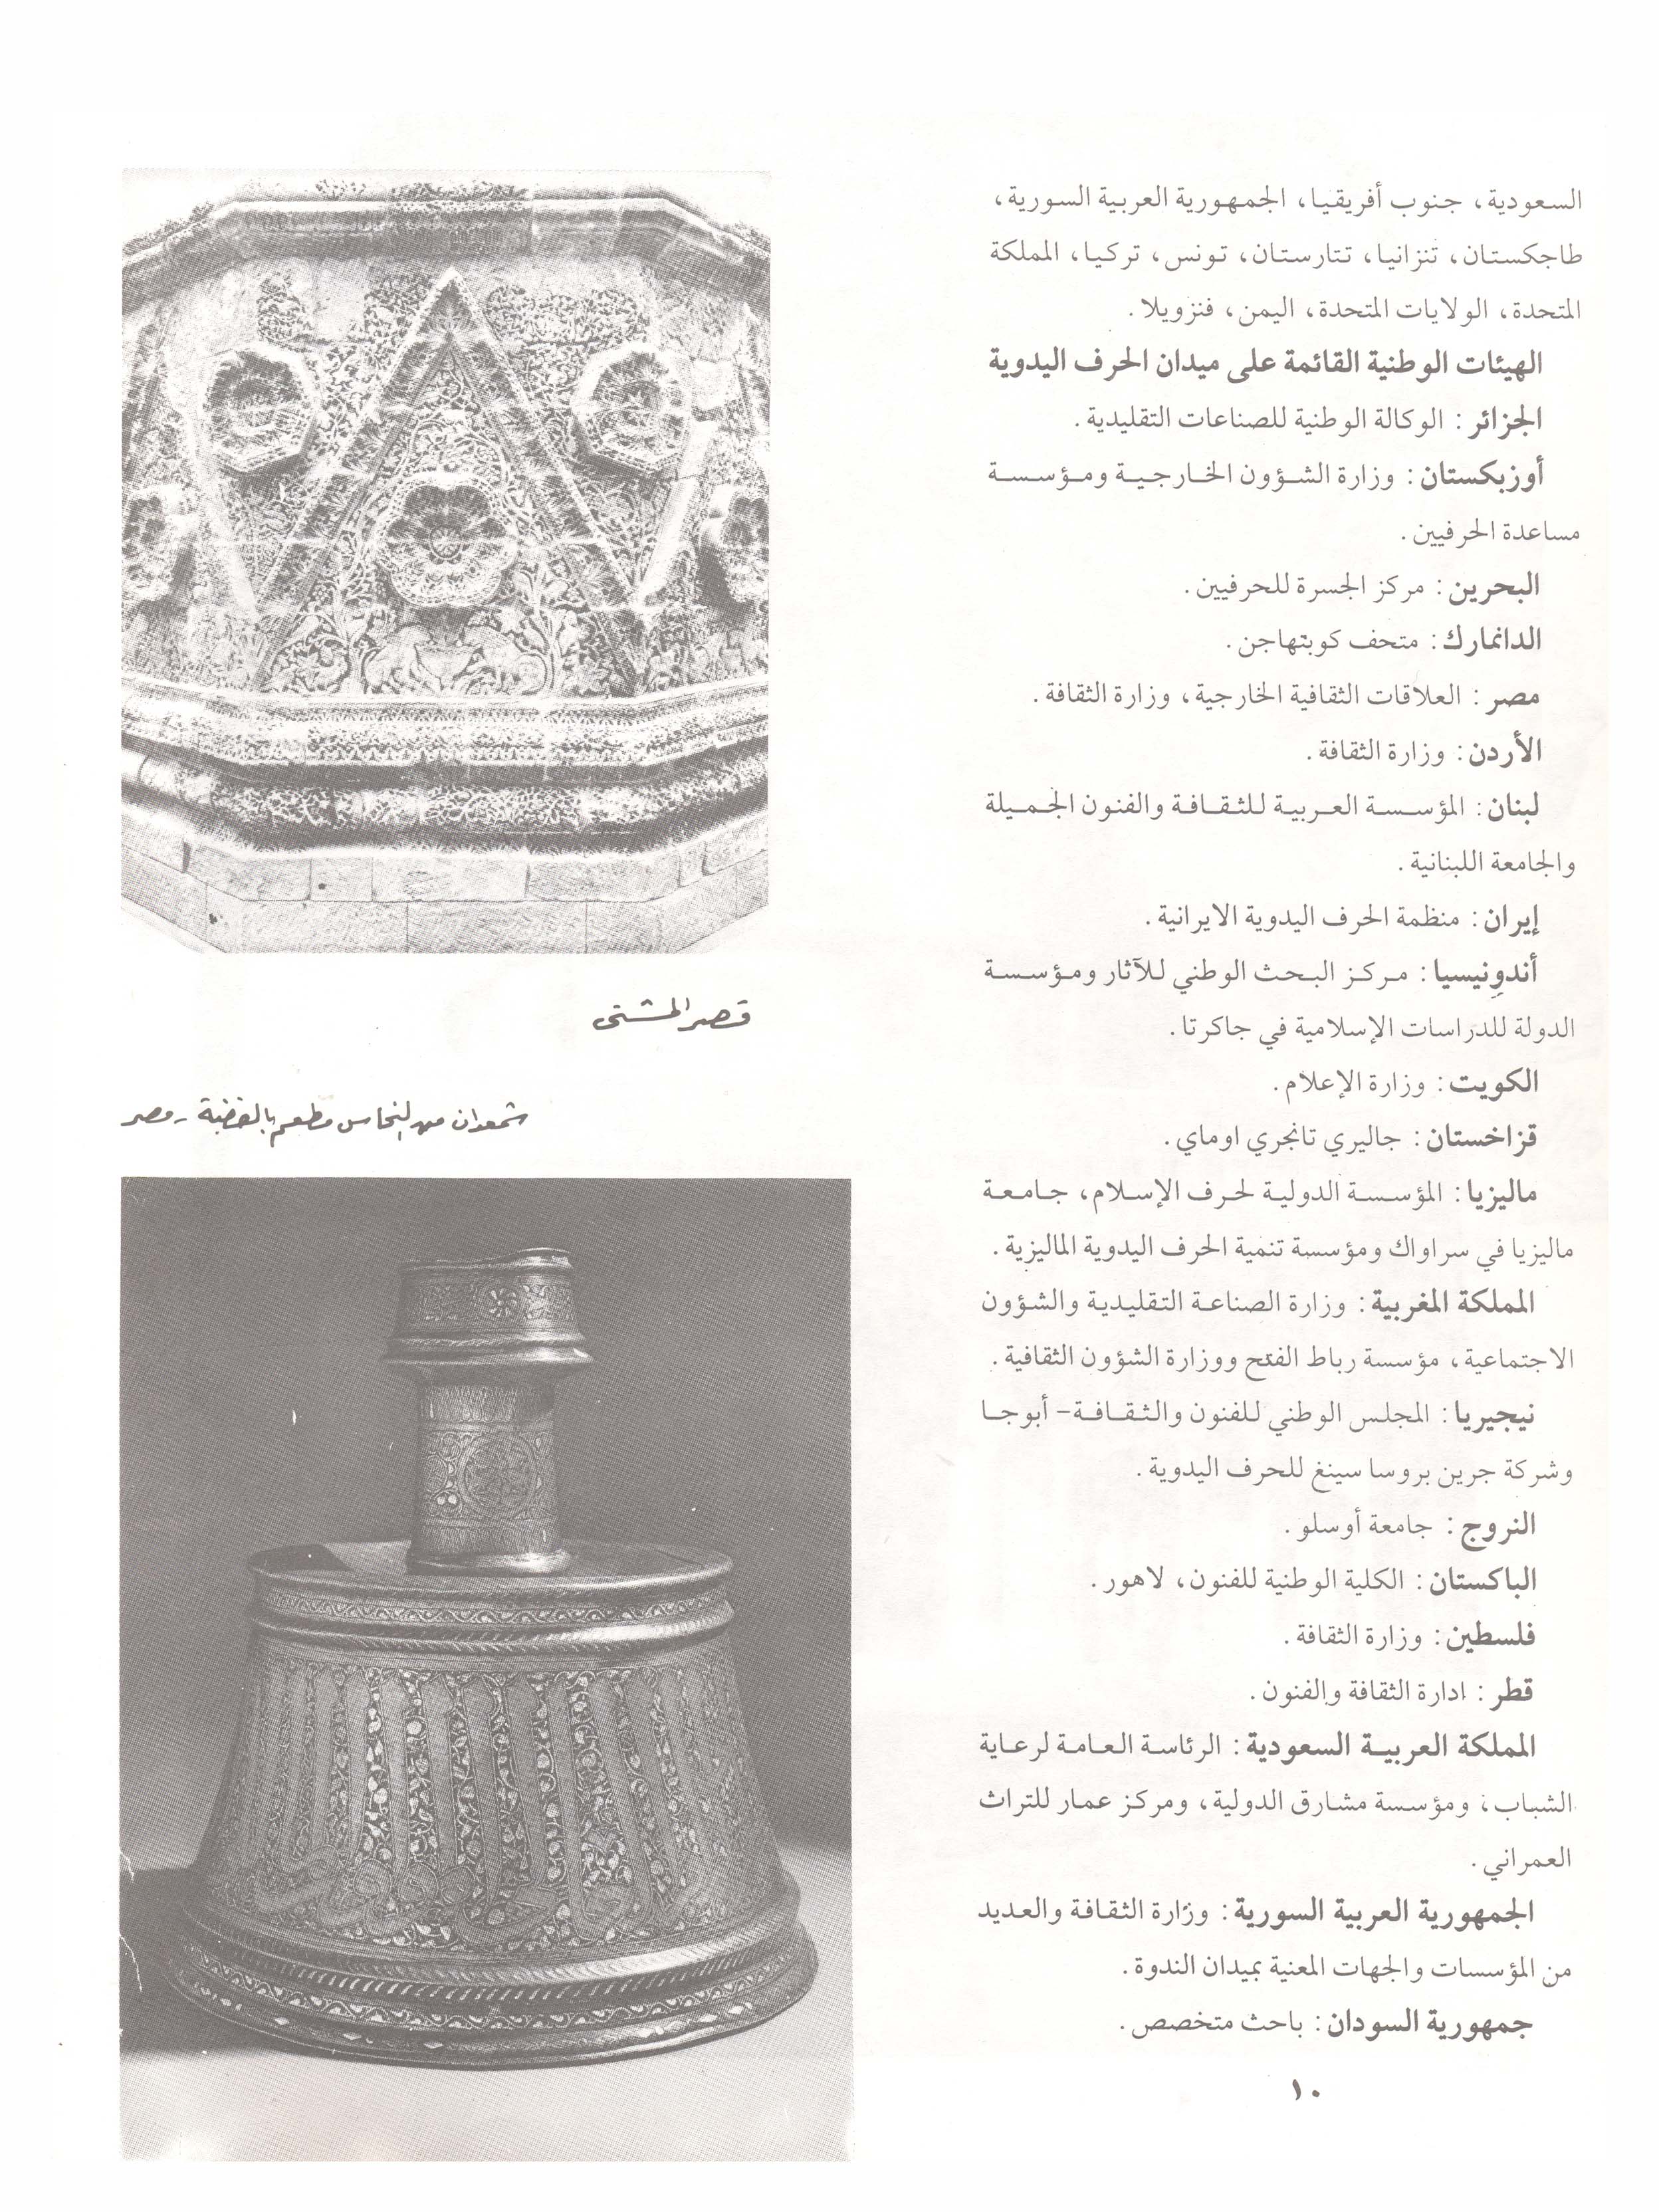 السعودية، جنوب أفريقيا، الجمهورية العربية السورية،
طاجكستان، تنزانيا، تتارستان، تونس، تركيا، المملكة
المتحدة، الولايات المتحدة، اليمن، فنزويلا.
الهيئات الوطنية القائمة على ميدان الحرف اليدوية
الجزائر: الوكالة الوطنية للصناعات التقليدية.
أوزبكستان: وزارة الشؤون الخارجية ومؤسسة
مساعدة الحرفيين.
البحرين: مركز الجسرة للحرفيين.
الدانمارك: متحف كوبنهاجن.
مصر: العلاقات الثقافية الخارجية، وزارة الثقافة.
الأردن: وزارة الثقافة.
لبنان: المؤسسة العربية للثقافة والفنون الجميلة
والجامعة اللبنانية.
إيران: منظمة الحرف اليدوية الايرانية.
أندونيسيا: مركز البحث الوطني للآثار ومؤسسة
الدولة للدراسات الإسلامية في جاكرتا.
الكويت: وزارة الإعلام.
قزاخستان: جاليري تانجري اوماي.
ماليزيا: المؤسسة الدولية لحرف الإسلام، جامعة
ماليزيا في سراواك ومؤسسة تنمية الحرف اليدوية الماليزية.
المملكة المغربية: وزارة الصناعة التقليدية والشؤون
الاجتماعية، مؤسسة رباط الفتح ووزارة الشؤون الثقافية.
نيجيريا: المجلس الوطني للفنون والثقافة- أبوجا
وشركة جرين بروسا سينغ للحرف اليدوية.
النروج: جامعة أوسلو.
الباكستان: الكلية الوطنية للفنون، لاهور.
فلسطين: وزارة الثقافة.
قطر: ادارة الثقافة والفنون.
المملكة العربية السعودية: الرئاسة العامة لرعاية
الشباب، ومؤسسة مشارق الدولية، ومركز عمار للتراث
العمراني.
الجمهورية العربية السورية: وزارة الثقافة والعديد
من المؤسسات والجهات المعنية بميدان الندوة.
جمهورية السودان: باحث متخصص.
١٠
قصر المشتى
شمعدان من النحاس مطعم بالفضة - مصر